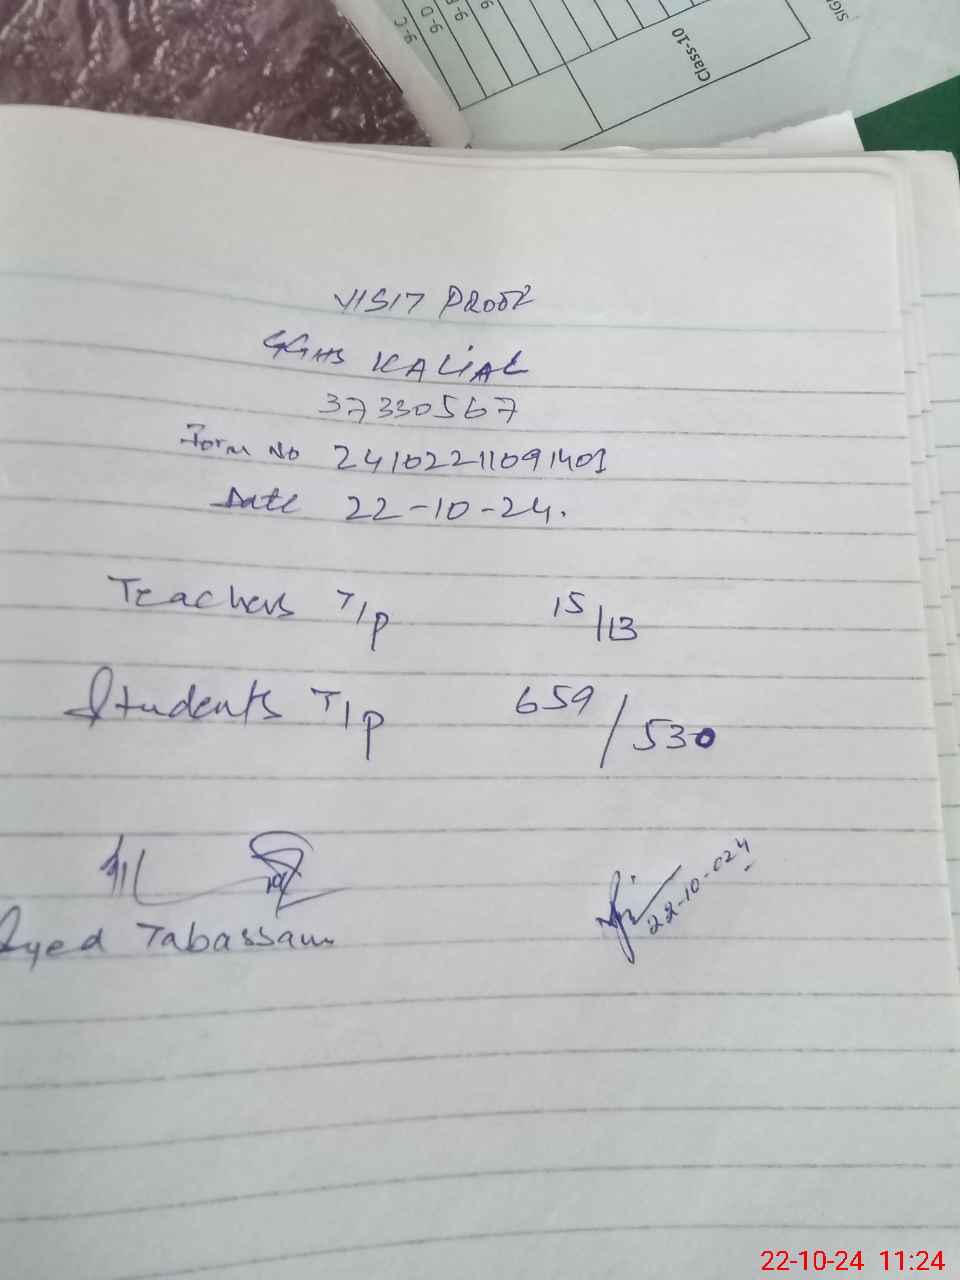 9-C
9-D
9-B
9
Class-10
SIG
VISIT PROOF
GGHS KALIAL
37330567
Form No 24102211091401
Date 22-10-24.
Teachers T/P 15/13
Students T/P 659/530
22-10-024
Syed Tabassam
22-10-24 11:24